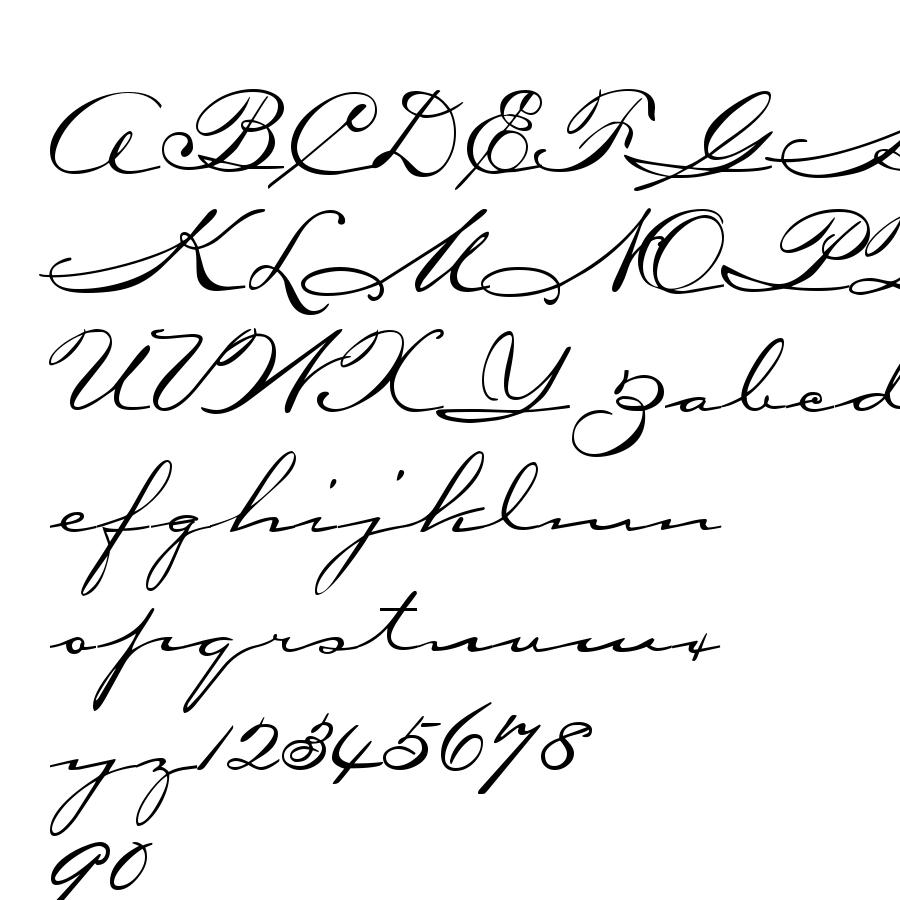 ABCDEFG
KLMNOP
UVWXYZabcd
efghijklmn
opqrstuvwx
yz12345678
90